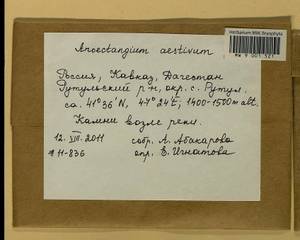 Herbarium MW, Bryophyta
MW 9 001 521
Anoectangium aestivum
Россия, Кавказ, Дагестан
Рутульский р-н, окр. с. Рутул.
ca. 41°36'N, 47°24'E, 1400-1500m alt.
Камни возле реки.
12. VIII. 2011 собр. А. Абакарова
#11-836 опр. Е. Игнатова